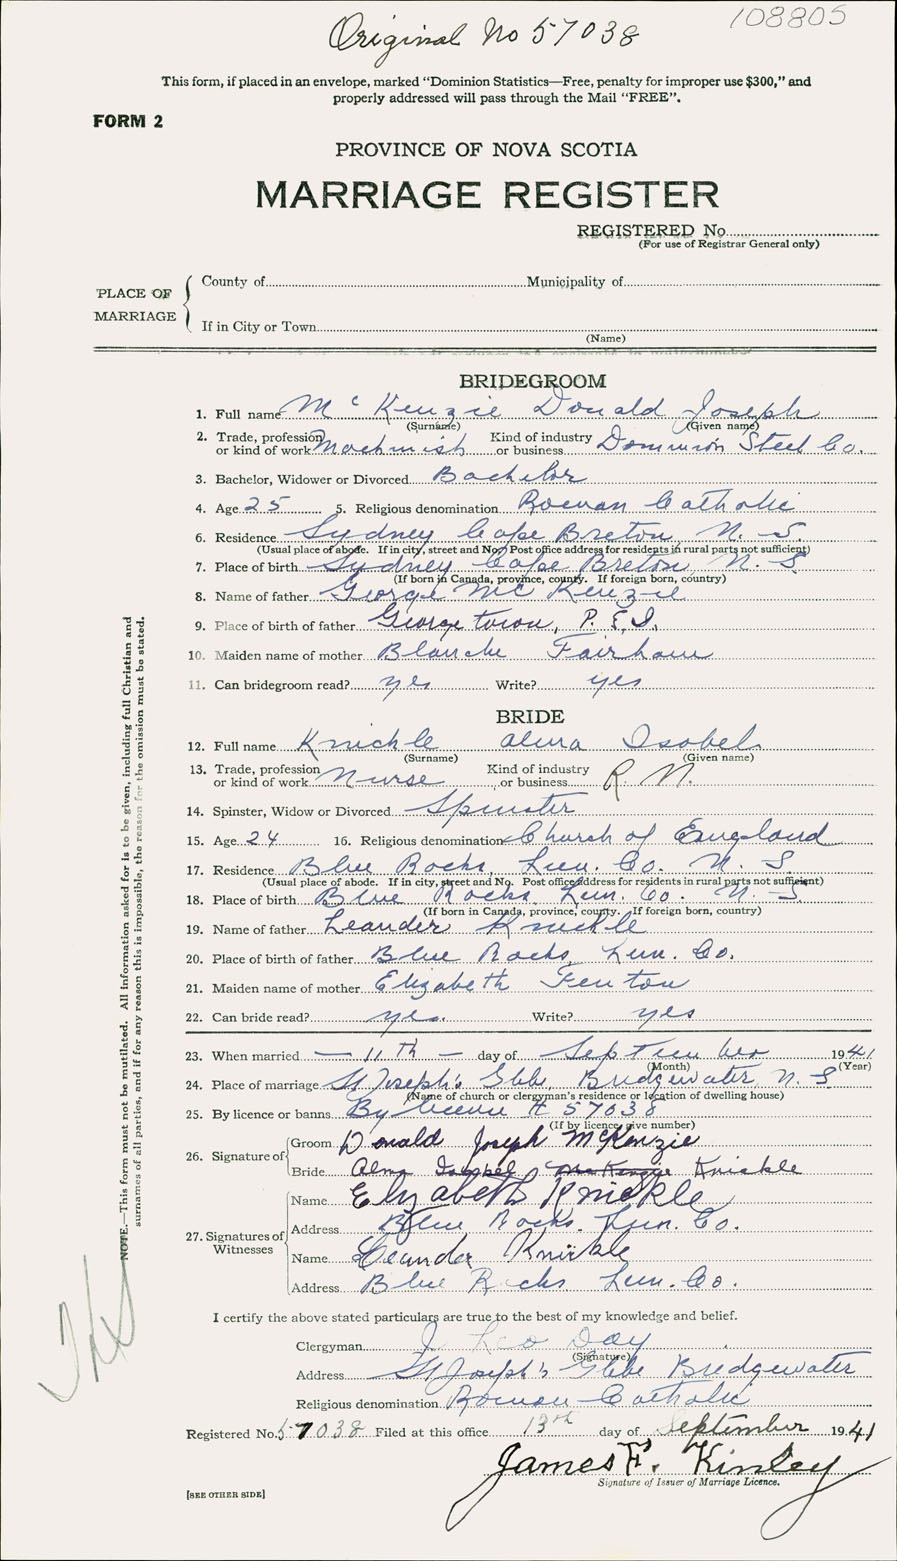 Original No 57038
108805
This form, if placed in an envelope, marked "Dominion Statistics—Free, penalty for improper use $300," and
properly addressed will pass through the Mail "FREE".
FORM 2
PROVINCE OF NOVA SCOTIA
MARRIAGE REGISTER
REGISTERED No.
(For use of Registrar General only)
PLACE OF MARRIAGE
County of Municipality of
If in City or Town
(Name)
BRIDEGROOM
1. Full name McKenzie Donald Joseph
(Surname) (Given name)
2. Trade, profession or kind of work Machinist Kind of industry or business Dominion Steel Co.
3. Bachelor, Widower or Divorced Bachelor
4. Age 25 5. Religious denomination Roman Catholic
6. Residence Sydney Cape Breton N. S.
(Usual place of abode. If in city, street and No. Post office address for residents in rural parts not sufficient)
7. Place of birth Sydney Cape Breton N. S
(If born in Canada, province, county. If foreign born, country)
8. Name of father George McKenzie
9. Place of birth of father Georgetown, P. E. I.
10. Maiden name of mother Blanche
11. Can bridegroom read? yes Write? yes
BRIDE
12. Full name Knickle Alma Isobel
(Surname) (Given name)
13. Trade, profession or kind of work Nurse Kind of industry or business R. N.
14. Spinster, Widow or Divorced Spinster
15. Age 24 16. Religious denomination Church of England
17. Residence Blue Rocks, Lun. Co. N. S
(Usual place of abode. If in city, street and No. Post office address for residents in rural parts not sufficient)
18. Place of birth Blue Rocks Lun. Co. N. S
(If born in Canada, province, county. If foreign born, country)
19. Name of father Leander Knickle
20. Place of birth of father Blue Rocks, Lun. Co.
21. Maiden name of mother Elizabeth Fenton
22. Can bride read? yes. Write? yes
23. When married — 11th — day of September 1941
(Month) (Year)
24. Place of marriage St Joseph's Glebe, Bridgewater N. S
(Name of church or clergyman's residence or location of dwelling house)
25. By licence or banns By licence # 57038
(If by licence, give number)
26. Signature of Groom Donald Joseph McKenzie
Bride Alma Isobel McKenzie Knickle
27. Signatures of Witnesses Name Elizabeth Knickle
Address Blue Rocks. Lun. Co.
Name Leander Knickle
Address Blue Rocks Lun. Co.
I certify the above stated particulars are true to the best of my knowledge and belief.
Clergyman J Leo Day
(Signature)
Address St Joseph's Glebe Bridgewater
Religious denomination Roman Catholic
Registered No. 57038 Filed at this office 13th day of September 1941
James F. Kinley
Signature of Issuer of Marriage Licence.
[SEE OTHER SIDE]
NOTE.—This form must not be mutilated. All Information asked for is to be given, including full Christian and
surnames of all parties, and if for any reason this is impossible, the reason for the omission must be stated.